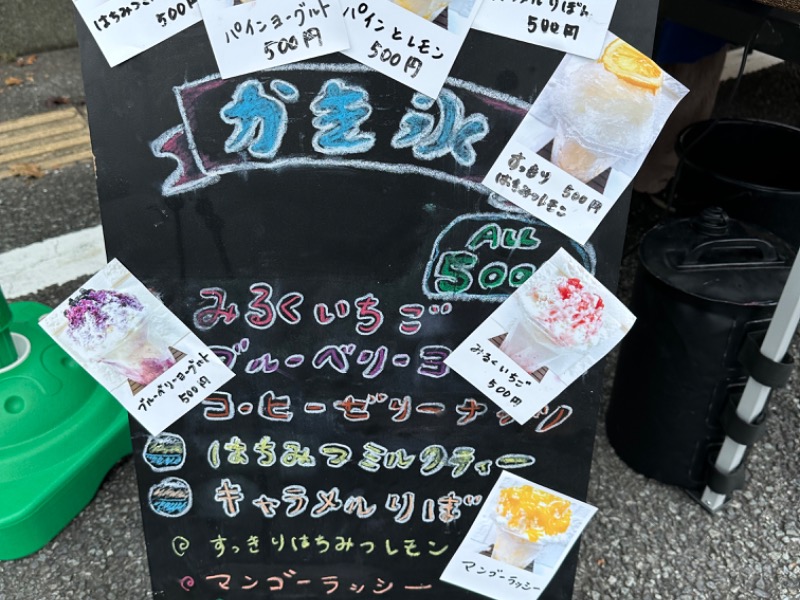 はちみつ
500円
パインヨーグルト
500円
パインとレモン
500円
キャラメルりぼん
500円
かき氷
すっきり 500円
はちみつレモン
ALL
500
みるくいちご
ブルーベリーヨ
コーヒーゼリー
はちみつミルクティー
キャラメルりぼ
すっきりはちみつレモン
マンゴーラッシー
ブルーベリーヨーグルト
500円
みるくいちご
500円
マンゴーラッシー